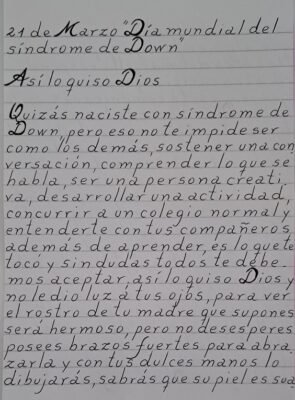 21 de Marzo "Día mundial del
síndrome de Down"
Así lo quiso Dios
Quizás naciste con síndrome de
Down, pero eso no te impide ser
como los demás, sostener una con
versación, comprender lo que se
habla, ser una persona creati
va, desarrollar una actividad,
concurrir a un colegio normal y
entenderte con tus compañeros
además de aprender, es lo que te
tocó y sin dudas todos te debe
mos aceptar, así lo quiso Dios y
no le dio luz a tus ojos, para ver
el rostro de tu madre que supones
será hermoso, pero no deseperes
posees brazos fuertes para abra
zarla y con tus dulces manos lo
dibujarás, sabrás que su piel es sua